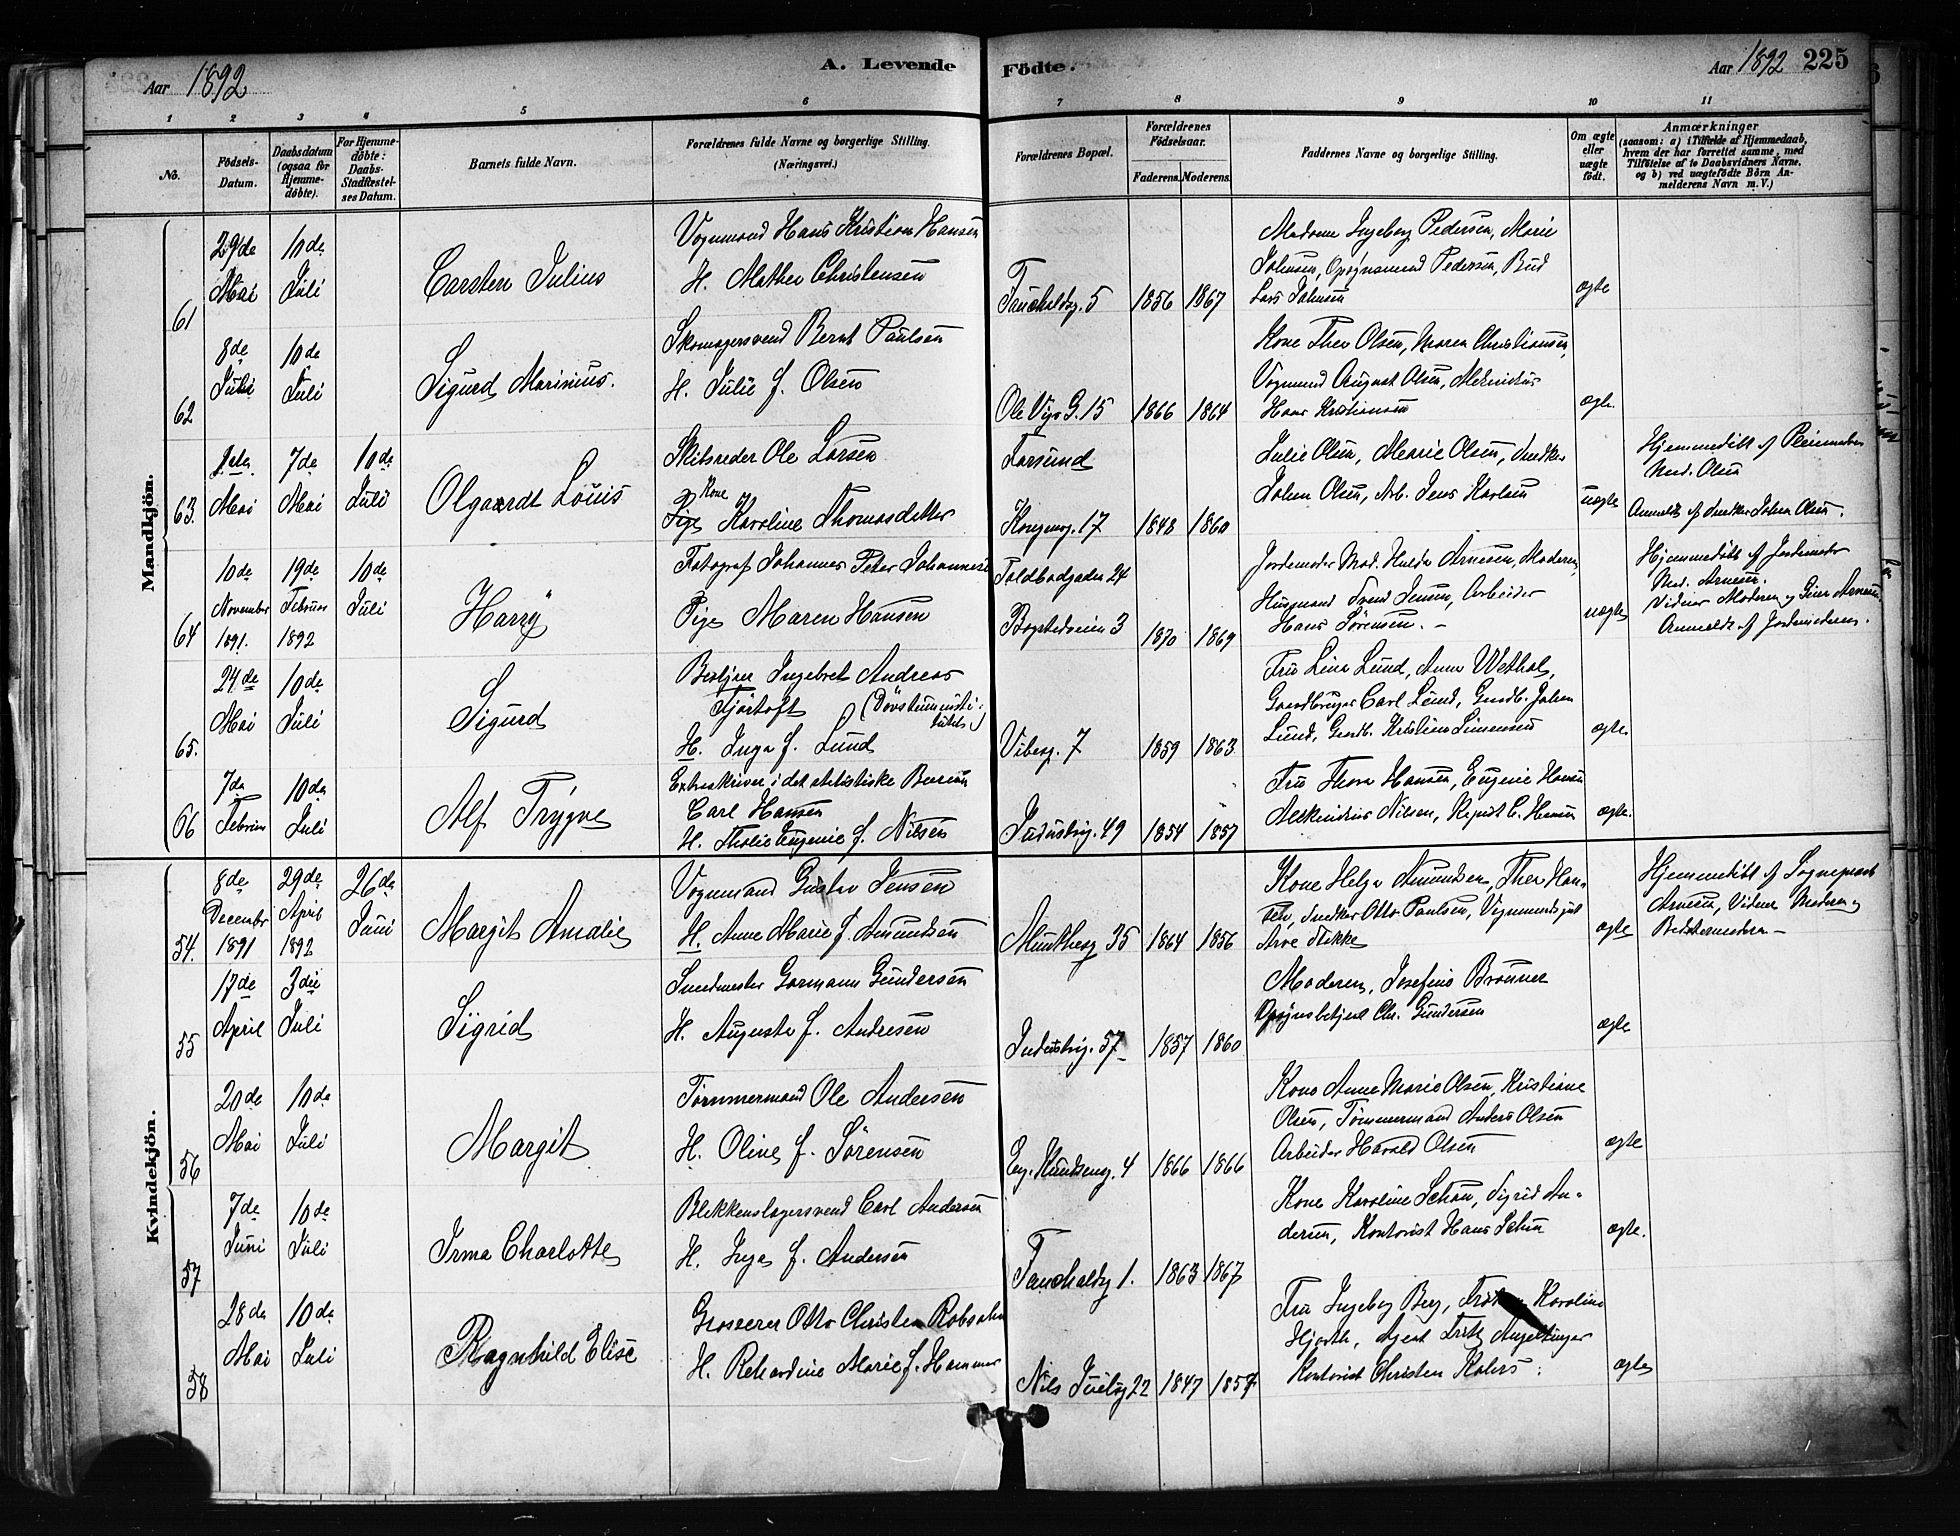 Aar 1892
A. Levende Födte.
Aar 1892 225
1 2 3 4 5 6 7 8 9 10 11
No.
Födsels-Datum.
Daabsdatum (ogsaa for Hjemme-döbte).
For Hjemme-döbte: Daabs-Stadfæstel-ses Datum.
Barnets fulde Navn.
Forældrenes fulde Navne og borgerlige Stilling.
(Næringsvei.)
Forældrenes Bopæl.
Forældrenes Födselsaar.
Faderens. Moderens.
Faddernes Navne og borgerlige Stilling.
Om ægte eller uægte födt.
Anmærkninger
(saasom: a) i Tilfælde af Hjemmedaab,
hvem der har forrettet samme, med
Tilföielse af to Daabsvidners Navne,
og b) ved uægtefödte Börn An-
melderens Navn m. V.)
Mandkjön.
61
29de Mai
10de Juli
Carsten Julius
Vognmand Hans Kristian Hansen
H. Mathea Christensen
5
1856 1867
Madame Ingeborg Pedersen, Marie
Johnsen, Opsynsmand Pedersen, Bud
Lars Johnsen
ægte
62
8de
10de Juli
Sigurd Marinius.
Skomagersvend Bernt Paulsen
H. Julie f. Olsen
Ole Vigs G. 15
1866 1864
Kone Thea Olsen, Maren Christiansen,
Vognmand August Olsen,
Hans Kristiansen
ægte.
63.
Mai
7de Mai
10de Juli
Olgaardt Louis
Skibsreder Ole Larsen
Kone
Pige Karoline Thomasdatter
Farsund
Kongensg. 17
1848 1860
Julie Olsen, Marie Olsen, Snedker
Johan Olsen, Arb. Jens Karlsen
uægte
Hjemmedöbt af
Mad. Olsen
Anmeldt af Snedker Johan Olsen.
64
10de November 1891.
19de Februar 1892
10de Juli
Harry
Fotograf Johannes Peter Johannesen
Pige Maren Hansen
Toldbodgaden 24
Bogstadveien 3
1870 1869
Jordemoder Mad. Hulda Arnesen, Moderen,
Husmand Svend Jensen, Arbeider
Hans Sörensen. -
uægte
Hjemmedöbt af Jordemoder
Mad. Arnesen.
Vidner Moderen og Arnesen.
Anmeldt af Jordemoderen.
65.
24de Mai
10de Juli
Sigurd
Bestyrer Ingebret Andreas
Fjörtoft (Dövstumminsti-
tutet)
H. Inga f. Lund
Vibesg. 7
1859 1863
Fru Lina Lund, Anna Wethal,
Gaardbruger Carl Lund, Gaardb. Johan
Lund, Gaardb. Kristian Simensen
ægte
66
7de Februar
10de Juli
Alf Trygve
Extraskriver i det statistiske Bureau
Carl Hansen
H. Thalie Eugenie f. Nilsen
Industrig. 49
1854 1857
Fru Thora Hansen, Eugenie Hansen
Nilsen, C. Hansen
ægte.
Kvindekjön.
54.
8de December 1891
29de April 1892
26de Juni
Margit Amalie
Vognmand Gustav Jensen
H. Anne Marie f. Amundsen
35
1864 1856
Kone Helga Amundsen, Thea Han-
sen, Snedker Otto Paulsen,
Arve
ægte
Hjemmedöbt af Sognepræst
Arnesen, Vidner Moderen og
Bedstemoderen -
55
17de April
3die Juli
Sigrid
Smedmester Gormann Gundersen
H. Augusta f. Andresen
Industrig. 57
1857 1860
Moderen, Josefine Brönner
Opsynsbetjent Chr. Gundersen
ægte
56
20de Mai
10de Juli
Margit
Tömmermand Ole Andersen
H. Oline f. Sörensen
4
1866 1866
Kone Anne Marie Olsen, Kristiane
Olsen, Tömmermand Anders Olsen
Arbeider Harald Olsen
ægte
57
7de Juni
10de Juli
Irma Charlotte
Blikkenslagersvend Carl Andersen
H. Inga f. Andersen
1.
1863 1867
Kone Karoline Schau, Sigrid An-
dersen, Kontorist Hans
ægte.
58
28de Mai
10de Juli
Ragnhild Elise
Grosserer Otto Christian Robsahm
H. Marie f. Hammer
Nils Juelsg 22
1847 1857
Fru Ingeborg Berg, Karoline
Hjorth, Agent Fritz
Kontorist Christen
ægte